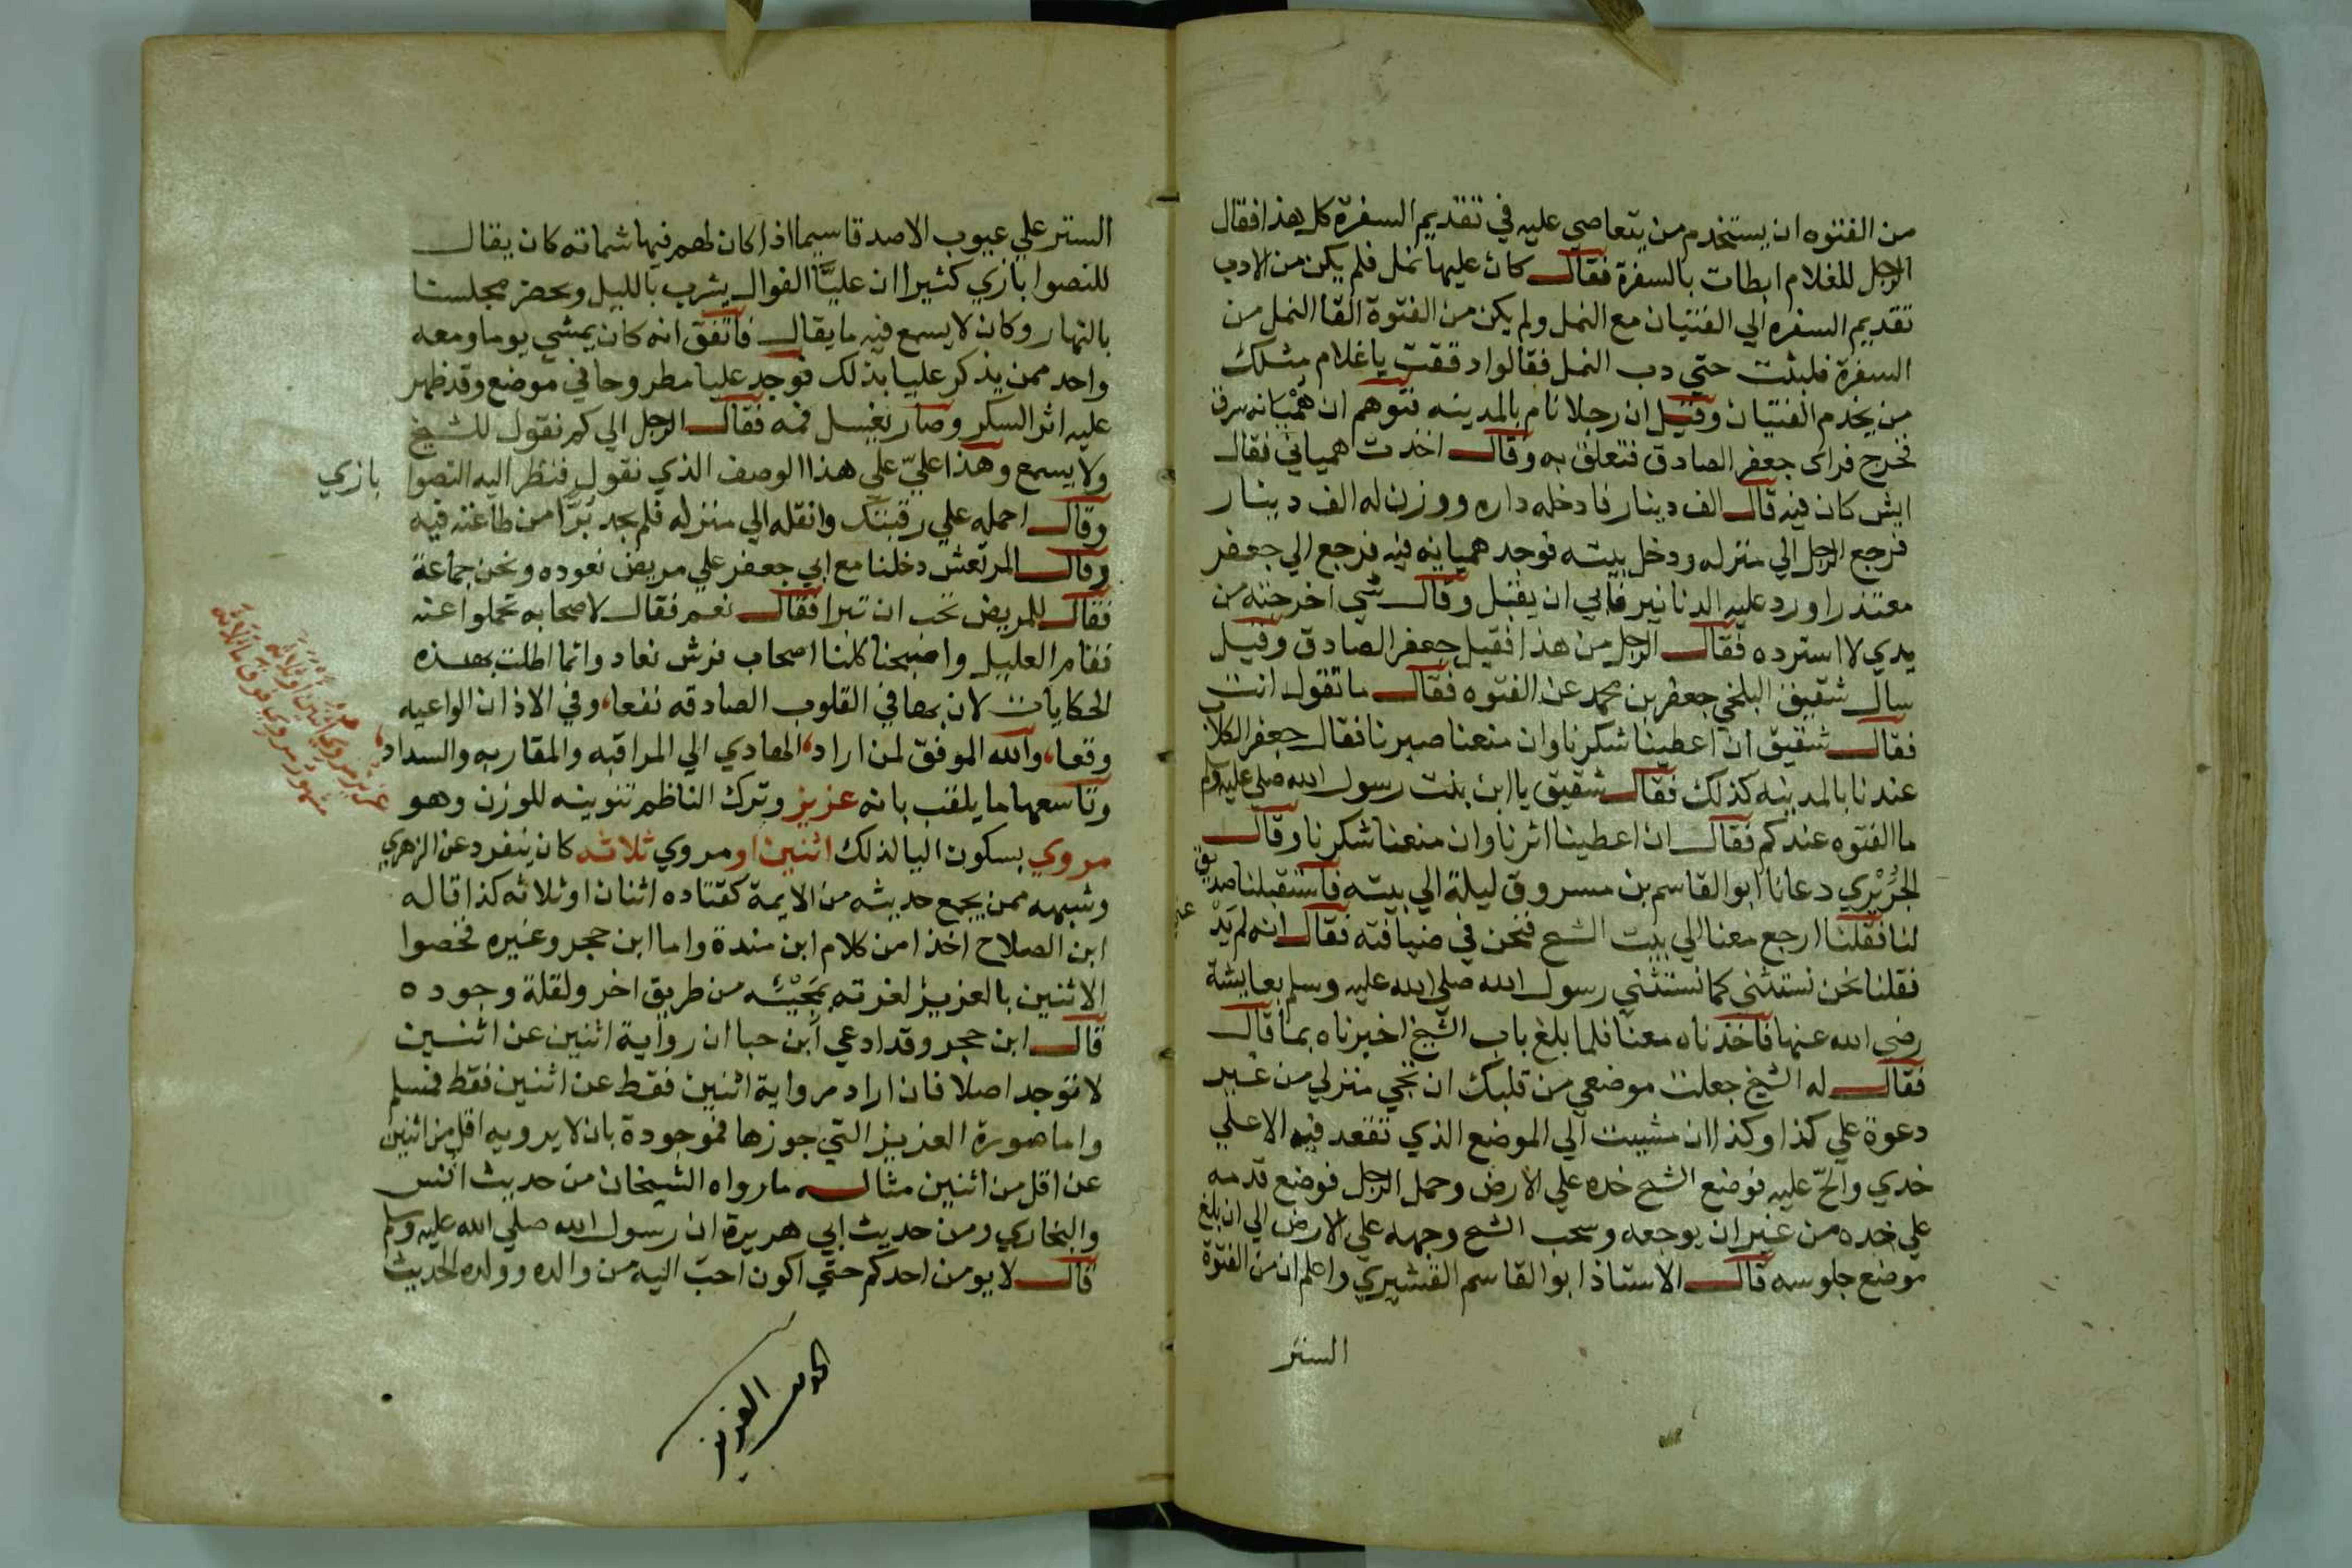 من الفتوه ان يستخدم من يتعاصي عليه في تقديم السفرة كل هذا فقال
الرجل للغلام ابطات بالسفرة فقال كان عليها نمل فلم يكن من الادب
تقديم السفره الي الفتيان مع النمل ولم يكن من الفتوة القا النمل من
السفرة فلبثت حتي دب النمل فقالوا دققت يا غلام مثلك
من يخدم الفتيان وقيل ان رجلا نام بالمدينه فتوهم ان هميانه سرق
فخرج فراى جعفر الصادق فتعلق به وقال اخذت همياني فقال
ايش كان فيه قال الف دينار فادخله داره ووزن له الف دينار
فرجع الرجل الي منزله ودخل بيته فوجد هميانه فيه فرجع الي جعفر
معتذرا ورد عليه الدنانير فابي ان يقبل وقال شي اخرجته من
يدي لا استرده فقال الرجل من هذا فقيل جعفر الصادق وقيل
سال شقيق البلخي جعفر بن محمد عن الفتوه فقال ما تقول انت
فقال شقيق ان اعطينا شكرنا وان منعنا صبرنا فقال جعفر الكلاب
عندنا بالمدينه كذلك فقال شقيق يا ابن بنت رسول الله صلى عليه وسلم
ما الفتوه عندكم فقال ان اعطينا اثرنا وان منعنا شكرنا وقال
الجريري دعانا ابو القاسم بن مسروق ليلة الي بيته فاستقبلنا صديق
لنا فقلنا ارجع معنا الي بيت الشيخ فنحن في ضيافته فقال انه لم يدعني
فقلنا نحن نستثني كما استثني رسول الله صلي الله عليه وسلم بعايشة
رضي الله عنها فاخذناه معنا فلما بلغ باب الشيخ اخبرناه بما قال
فقال له الشيخ جعلت موضعي من قلبك ان تجي منزلي من غير
دعوة علي كذا وكذا ان مشيت الي الموضع الذي تقعد فيه الا علي
خدي والح عليه فوضع الشيخ خده علي الارض وحمل الرجل فوضع قدمه
علي خده من غير ان يوجعه وسحب الشيخ وجهه علي الارض الي ان بلغ
موضع جلوسه قال الاستاذ ابو القاسم القشيري واعلم ان من الفتوة
الستر
الستر علي عيوب الاصدقا سيما اذا كان لهم فيها شماته كان يقال
للنصرا بازي كثيرا ان عليا القوال يشرب بالليل ويحضر مجلسنا
بالنهار وكان لا يسمع فيه ما يقال فاتفق انه كان يمشي يوما ومعه
واحد ممن يذكر عليا بذلك فوجد عليا مطروحا في موضع وقد ظهر
عليه اثر السكر وصار يغسل فمه فقال الرجل الي كم نقول للشيخ
ولا يسمع وهذا علي علي هذا الوصف الذي نقول فنظر اليه النصرا بازي
وقال احمله علي رقبتك وانقله الي منزله فلم يجد بدا من طاعته فيه
وقال المرتعش دخلنا مع ابي جعفر علي مريض نعوده ونحن جماعة
فقال للمريض تحب ان تبرا فقال نعم فقال لاصحابه تحملوا عنه
فقام العليل واصبحنا كلنا اصحاب فرش نعاد وانما اطلت بهذه
الحكايات لان بها في القلوب الصادقه نفعا، وفي الاذان الواعيه
وقعا، والله الموفق لمن اراد، الهادي الي المراقبه والمقاربه والسداد،
وتاسعها ما يلقب بانه عزيز وترك الناظم تنوينه للوزن وهو
مروي بسكون اليا لذلك اثنين او مروي ثلاثه كان ينفرد عن الزهري
وشبهه ممن يجمع حديثه من الايمة كقتاده اثنان او ثلاثه كذا قاله
ابن الصلاح اخذا من كلام ابن مندة واما ابن حجر وغيره فخصوا
الاثنين بالعزيز لعزته بمجيئه من طريق اخر ولقلة وجوده
قال ابن حجر وقد ادعي ابن حبان ان رواية اثنين عن اثنين
لا توجد اصلا فان اراد رواية اثنين فقط عن اثنين فقط فمسلم
واما صورة العزيز التي جوزها فموجودة بان لا يرويه اقل من اثنين
عن اقل من اثنين مثاله ما رواه الشيخان من حديث انس
والبخاري ومن حديث ابي هريرة ان رسول الله صلي الله عليه وسلم
قال لا يومن احدكم حتي اكون احب اليه من والده وولده الحديث
عزيز مروي اثنين او ثلاثه
مشهور مروي فوق ما ثلاثه
العزيز